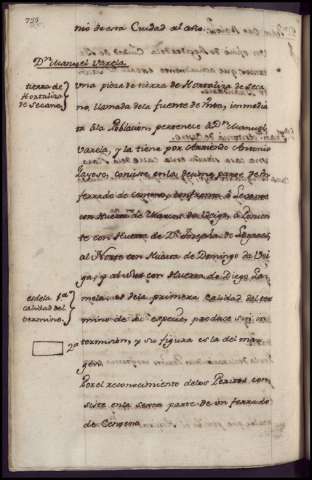 nio de esta Ciudad al año.
Dn. Manuel Varela.
tierra de
Hortaliza
de Secano
Una pieza de tierra de Hortaliza de Seca
no, llamada de la fuente de mea, inmedia
ta ála Poblacion, pertenece á Dn. Manuel
Varela, y la tiene por Arriendo Antonio
Layoso, consiste en la decima parte de un
ferrado de centeno, confronta á Levante
con Huerta de Marcos de Veiga, á Ponien
te con Huerta de Dn. Joseph de
al Norte con Huerta de Domingo da Vei
ga, y al Sur con Huerta de Diego La
mela, es de la primera calidad del ter
mino de su especie, produce sin in
termision, y su figura es la del mar
gen.
es de la 1a.
calidad del
termino.
2a
Por el reconocimiento de los Peritos con
siste en la sexta parte de un ferrado
de Centeno.